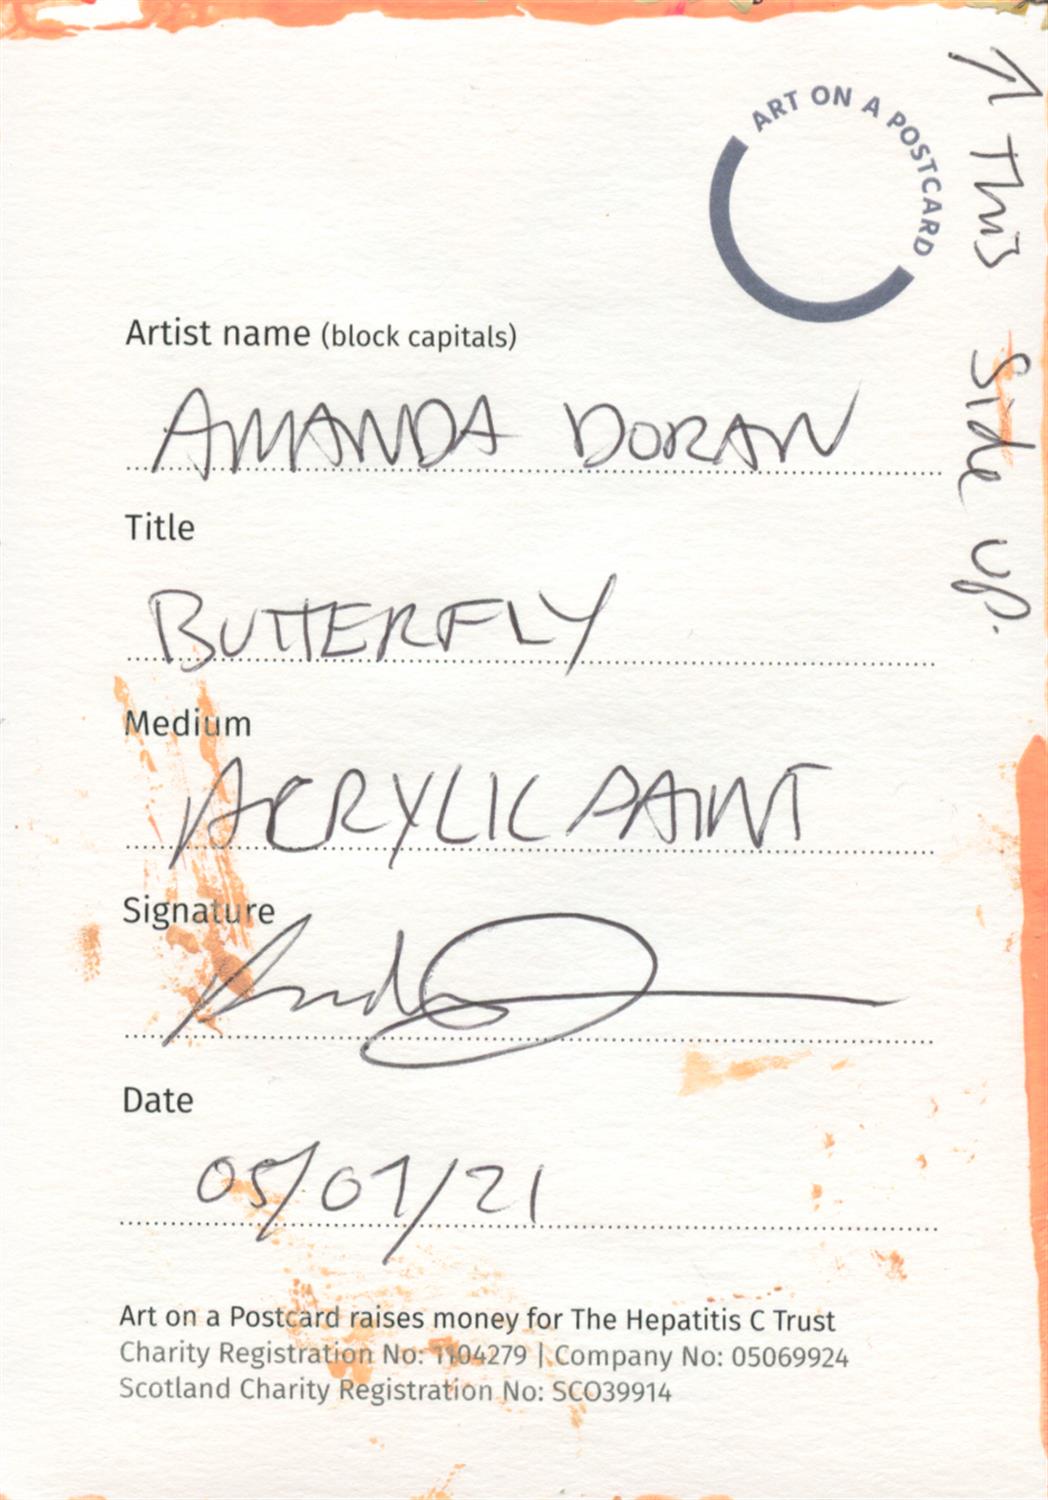 ART ON A POSTCARD
↑ This Side up.
Artist name (block capitals)
AMANDA DORAN
Title
BUTTERFLY
Medium
ACRYLIC PAINT
Signature
Date
05/07/21
Art on a Postcard raises money for The Hepatitis C Trust
Charity Registration No: 1104279 | Company No: 05069924
Scotland Charity Registration No: SCO39914